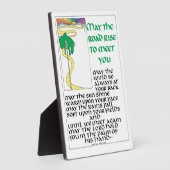 May the
road rise
to meet
you
May the
wind be
always at
your back
May the sun shine
warm upon your face
May the rains fall
soft upon your fields
and
until we meet again
May the Lord hold
you in the palm of
his hand.